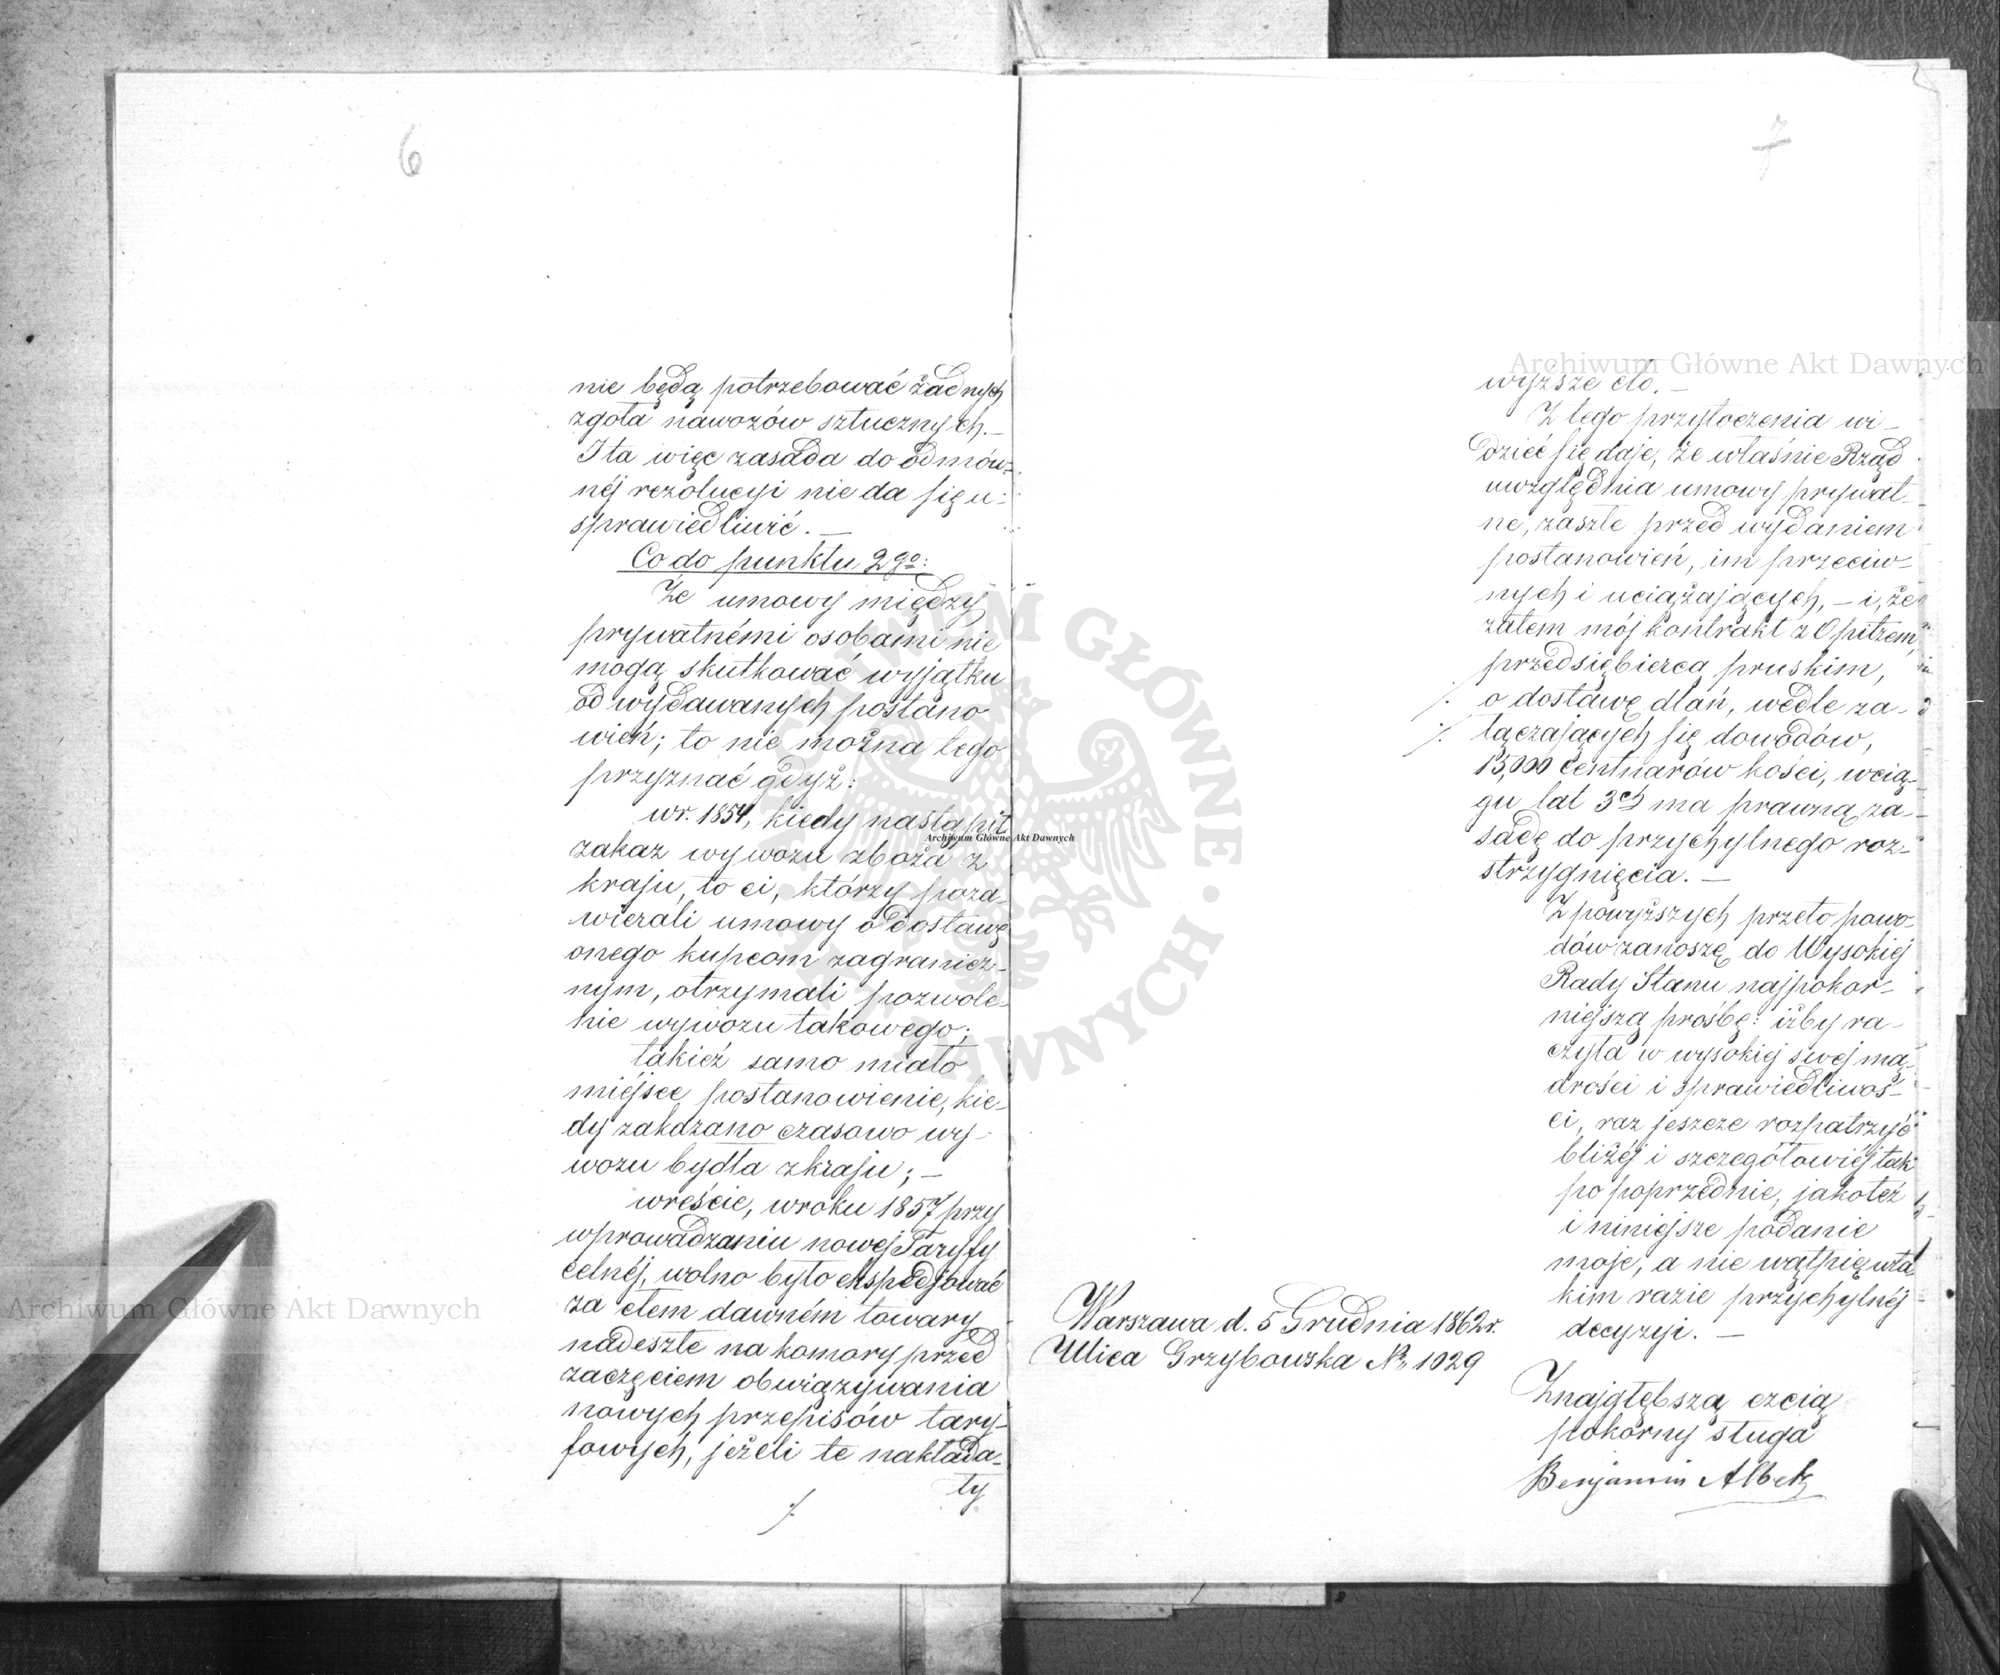 6
nie będą potrzebować żadnych
zgoła nawozów sztucznych.—
I ta więc zasada do odmów=
néj rezolucyi nie da się u=
sprawiedliwić.—
Co do punktu 2go:
Że umowy między
prywatnémi osobami nie
mogą skutkować wyjątku
od wydawanych postano
wień; to nie można tego
przyznać gdyż:
w r. 1854, kiedy nastąpił
zakaz wywozu zboża z
kraju, to ci, którzy poza-
wierali umowy o dostawę
onego kupcom zagranicz-
nym, otrzymali pozwole-
nie wywozu takowego;
takież samo miało
miejsce postanowienie, kie-
dy zakazano czasowo wy-
wozu bydła z kraju;—
wreście, w roku 1857 przy
wprowadzaniu nowej Taryfy
celnéj, wolno było ekspedjować
za cłem dawném towary
nadeszłe na komory przed
zaczęciem obwiązywania
nowych przepisów tary-
fowych, jeżeli te nakłada-
ły
7
wyższe cło.—
Z tego przytoczenia wi-
dzieć się daje, że właśnie Rząd
uwzględnia umowy prywat-
ne, zaszłe przed wydaniem
postanowień, im przeciw-
nych i uciążających,— i, że
zatem mój kontrakt z Opitzem,
przedsiębiercą pruskim,
o dostawę dlań, wedle za-
łączających się dowodów,
15,000 centnarów kości, wcią-
gu lat 3ch ma prawną za-
sadę do przychylnego roz-
strzygnięcia.—
Z powyższych przeto powo-
dów zanoszę do Wysokiej
Rady Stanu najpokor-
niejszą prośbę: iżby ra-
czyła w wysokiej swej mą-
drości i sprawiedliwoś-
ci, raz jeszcze rozpatrzyć
bliżéj i szczegółowiéj tak
po poprzednie, jakoteż
i niniejsze podanie
moje, a nie wątpię w ta
kim razie przychylnéj
decyzyi.—
Warszawa d. 5 Grudnia 1862 r.
Ulica Grzybowska No 1029
Z najgłębszą czcią
pokorny sługa
Benjamin Albek
Archiwum Główne Akt Dawnych
Archiwum Główne Akt Dawnych
Archiwum Główne Akt Dawnych
ARCHIWUM GŁÓWNE AKT DAWNYCH